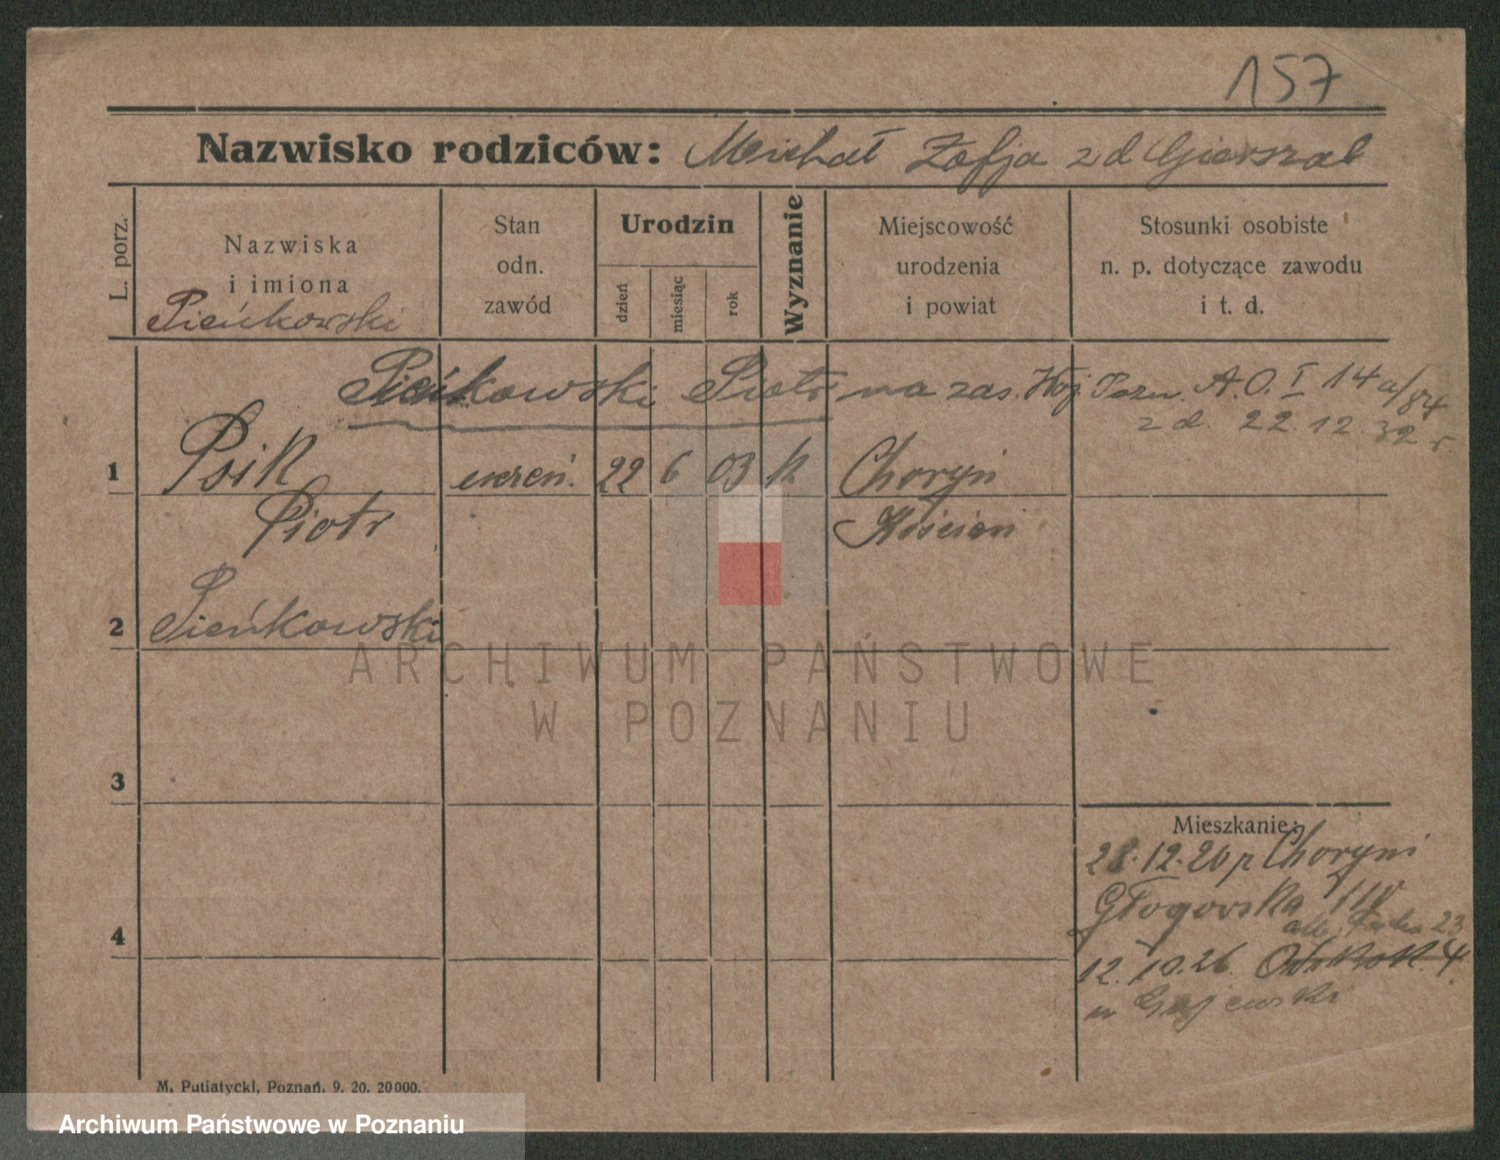 157
Nazwisko rodziców: Michał Zofja z d Gierszal
L. porz.
Nazwiska
i imiona
Pieńkowski
Stan
odn.
zawód
Urodzin
dzień
miesiąc
rok
Wyznanie
Miejscowość
urodzenia
i powiat
Stosunki osobiste
n. p. dotyczące zawodu
i t. d.
Pieńkowski Piotr na zas. Woj. Pozn. A.O. I 14a/84
z d. 22.12.32 r
1 Psik uczeń. 22 6 03 k Choryń
Piotr Kościan
2 Pieńkowski
3
4
Mieszkanie:
28.12.20 p Choryni
Głogowska 110
23
12.10.26. 4
Gajewski
M. Putiatycki, Poznań. 9. 20. 20 000.
ARCHIWUM PAŃSTWOWE
W POZNANIU
Archiwum Państwowe w Poznaniu